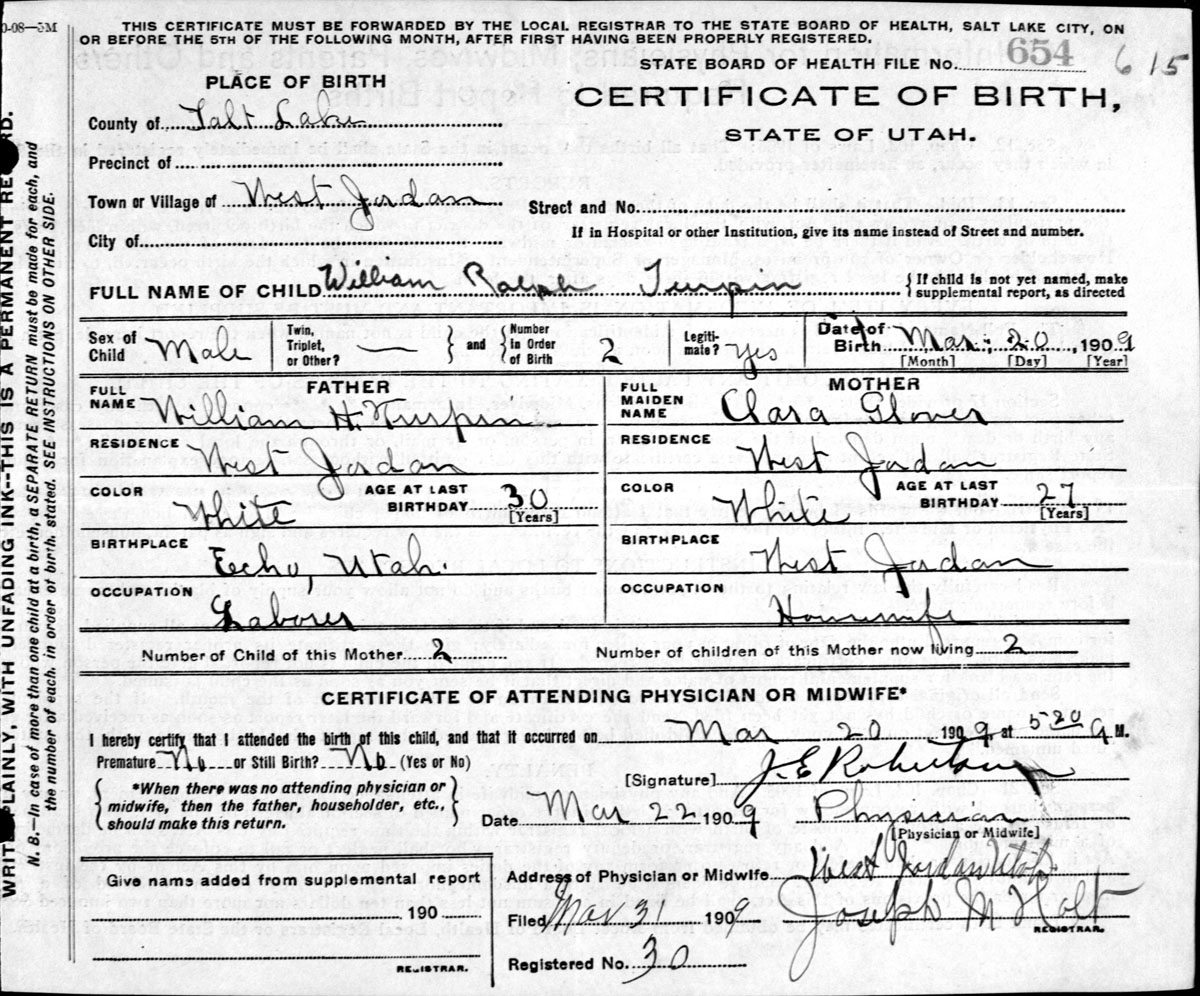 0-08—5M
THIS CERTIFICATE MUST BE FORWARDED BY THE LOCAL REGISTRAR TO THE STATE BOARD OF HEALTH, SALT LAKE CITY, ON
OR BEFORE THE 5TH OF THE FOLLOWING MONTH, AFTER FIRST HAVING BEEN PROPERLY REGISTERED.
STATE BOARD OF HEALTH FILE No. 654 615
PLACE OF BIRTH
CERTIFICATE OF BIRTH,
STATE OF UTAH.
County of Salt Lake
Precinct of
Town or Village of West Jordan
Street and No.
City of
If in Hospital or other Institution, give its name instead of Street and number.
FULL NAME OF CHILD William Ralph Turpin { If child is not yet named, make
supplemental report, as directed
Sex of Child Male
Twin, Triplet, or Other? — } and { Number in Order of Birth 2
Legiti-mate? Yes
Date of Birth Mar. 20, 1909
[Month] [Day] [Year]
FATHER
FULL NAME William H. Turpin
RESIDENCE West Jordan
COLOR White
AGE AT LAST BIRTHDAY 30
[Years]
BIRTHPLACE Echo, Utah.
OCCUPATION Laborer
MOTHER
FULL MAIDEN NAME Clara Glover
RESIDENCE West Jordan
COLOR White
AGE AT LAST BIRTHDAY 27
[Years]
BIRTHPLACE West Jordan
OCCUPATION Housewife
Number of Child of this Mother 2
Number of children of this Mother now living 2
CERTIFICATE OF ATTENDING PHYSICIAN OR MIDWIFE*
I hereby certify that I attended the birth of this child, and that it occurred on Mar 20 1909, at 5 20 a M.
Premature No or Still Birth? No (Yes or No)
[Signature] J. E. Robertson
{ *When there was no attending physician or
midwife, then the father, householder, etc.,
should make this return. }
Date Mar 22 1909 Physician
[Physician or Midwife]
Give name added from supplemental report
190
REGISTRAR.
Address of Physician or Midwife West Jordan Utah
Filed Mar 31 1909 Joseph M Holt
REGISTRAR.
Registered No. 30
WRITE PLAINLY, WITH UNFADING INK--THIS IS A PERMANENT RECORD.
N. B.—In case of more than one child at a birth, a SEPARATE RETURN must be made for each, and
the number of each, in order of birth, stated. SEE INSTRUCTIONS ON OTHER SIDE.